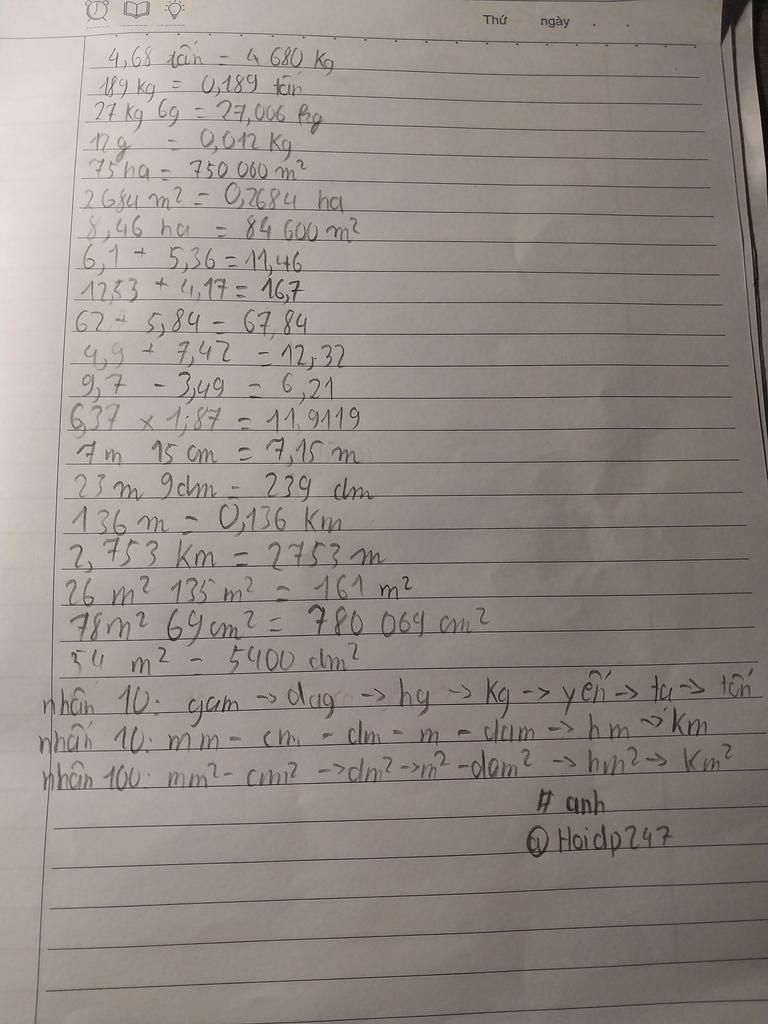 Thứ ngày . .
4,68 tấn = 4 680 Kg
189 kg = 0,189 tấn
27 Kg 6g = 27,006 Kg
12g = 0,012 Kg
75 ha = 750 000 m²
2684 m² = 0,2684 ha
8,46 ha = 84 600 m²
6,1 + 5,36 = 11,46
12,53 + 4,17 = 16,7
62 + 5,84 = 67,84
4,9 + 7,42 = 12,32
9,7 - 3,49 = 6,21
6,37 × 1,87 = 11,9119
7m 15 cm = 7,15 m
23 m 9dm = 239 dm
136 m = 0,136 Km
2,753 Km = 2753 m
26 m² 135 m² = 161 m²
78m² 69cm² = 780 069 cm²
54 m² = 5400 dm²
nhân 10: gam → dag → hg → Kg → yến → tạ → tấn
nhân 10: mm - cm - dm - m - dam → hm → Km
nhân 100: mm² - cm² → dm² → m² - dam² → hm² → Km²
# anh
@Hoidp247